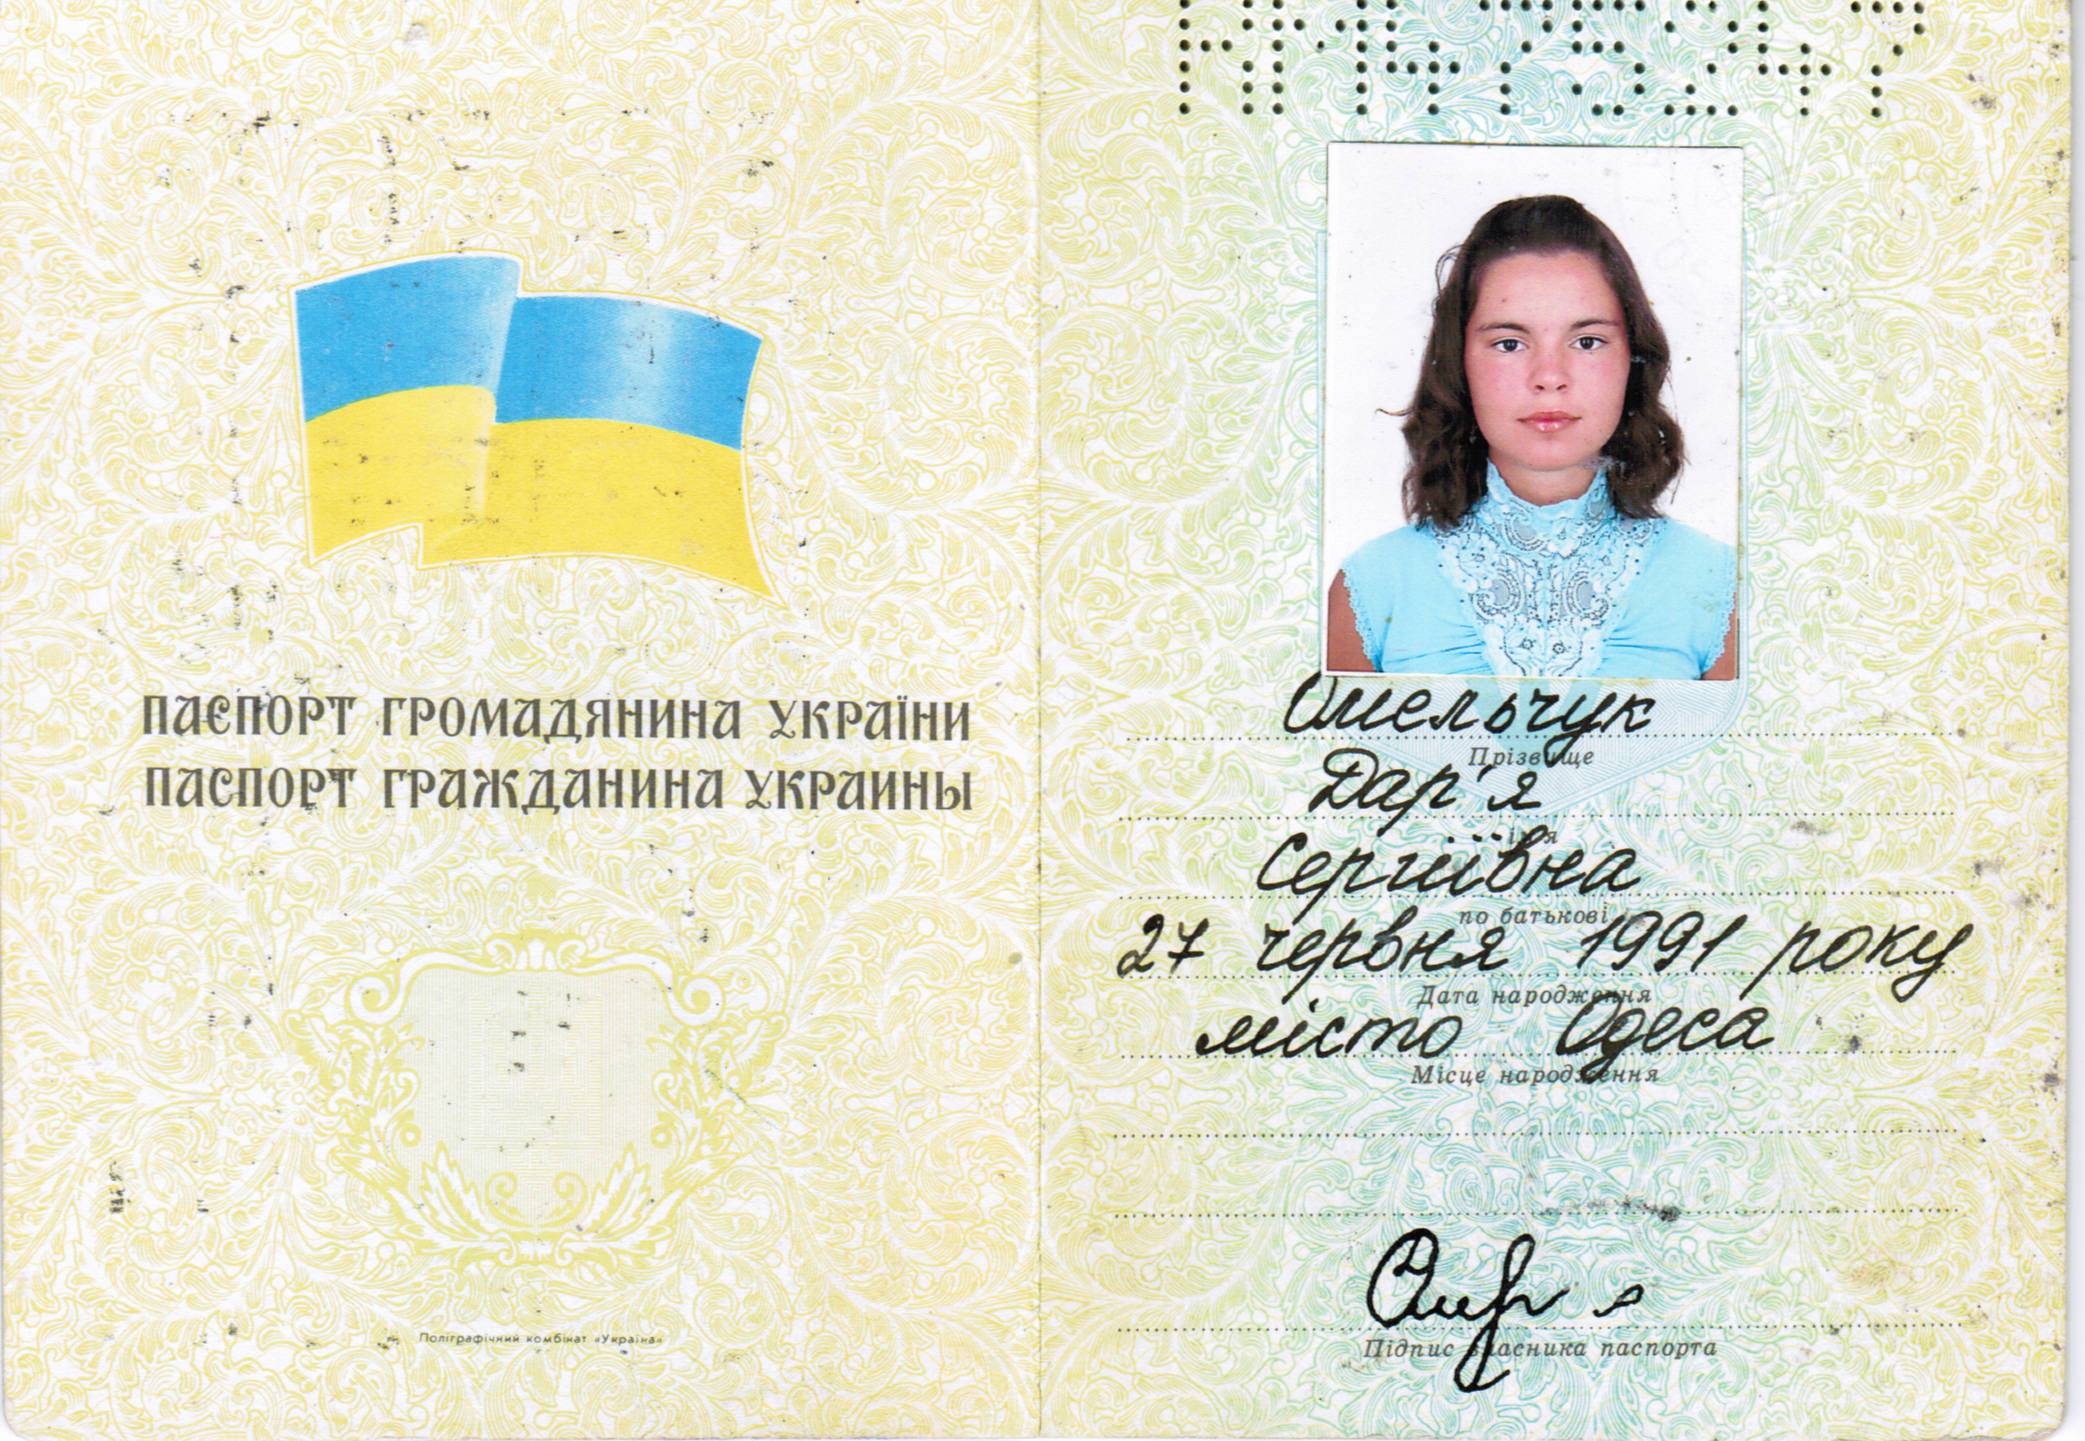 ПАСПОРТ ГРОМАДЯНИНА УКРАЇНИ
ПАСПОРТ ГРАЖДАНИНА УКРАИНЫ
Поліграфічний комбінат «Україна»
Омельчук
Прізвище
Дар'я
ім'я
Сергіївна
по батькові
27 червня 1991 року
Дата народження
місто Одеса
Місце народження
Підпис власника паспорта